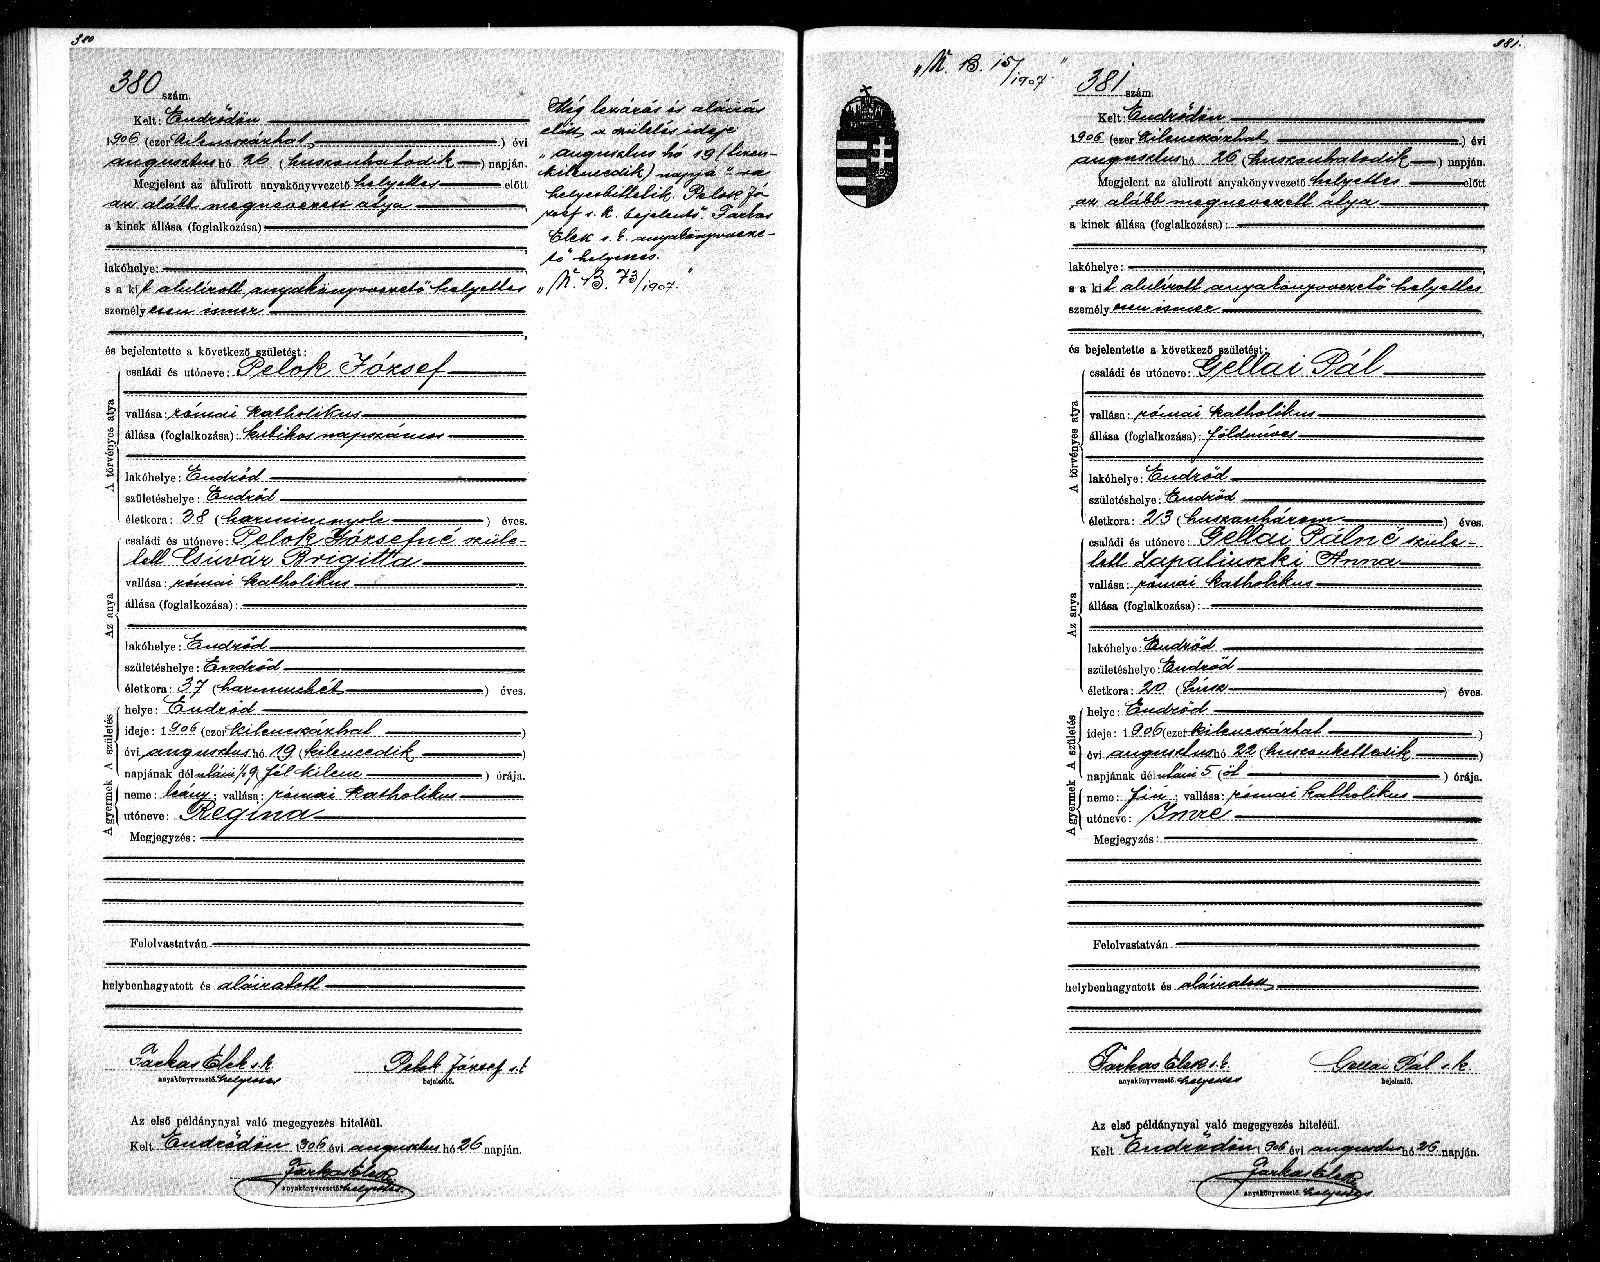 380
380 szám.
Kelt: Endrődön
1906 (ezer kilenczszázhat) évi
augusztus hó 26 (huszonhatodik) napján.
Megjelent az alulirott anyakönyvvezető helyettes előtt
az alább megnevezett atya
a kinek állása (foglalkozása)
lakóhelye:
s a kit alulirott anyakönyvvezető helyettes
személyesen ismer
és bejelentette a következő születést:
A törvényes atya
családi és utóneve: Pelok József
vallása: római katholikus
állása (foglalkozása): kubikos napszámos
lakóhelye: Endrőd
születéshelye: Endrőd
életkora: 38 (harmincnyolc) éves.
Az anya
családi és utóneve: Pelok Józsefné szüle-
tett Csúvár Brigitta
vallása: római katholikus
állása (foglalkozása):
lakóhelye: Endrőd
születéshelye: Endrőd
életkora: 37 (harminchét) éves.
A gyermek A születés
helye: Endrőd
ideje: 1906 (ezer kilenczszázhat)
évi augusztus hó 19 (kilencedik)
napjának dél utáni ½9 fél kilenc) órája.
neme: leány; vallása: római katholikus
utóneve: Regina
Megjegyzés:
Felolvastatván
helybenhagyatott és aláiratott
Farkas Elek s. k. Pelok József s. k.
anyakönyvvezető helyettes bejelentő.
Az első példánynyal való megegyezés hiteléül.
Kelt Endrődön 1906 évi augusztus hó 26 napján.
Farkas Elek
anyakönyvvezető helyettes
Még lezárás és aláirás
előtt a születés ideje
"augusztus hó 19 (tizen-
kilencedik) napjá"-ra
helyesbittetik. Pelok Jó-
zsef s. k. bejelentő. Farkas
Elek s. k. anyakönyvveze-
tő helyettes.
"N. B. 73/1907."
"N. B. 15/1907."
381.
381 szám.
Kelt: Endrődön
1906 (ezer kilenczszázhat) évi
augusztus hó 26 (huszonhatodik) napján.
Megjelent az alulirott anyakönyvvezető helyettes előtt
az alább megnevezett atya
a kinek állása (foglalkozása):
lakóhelye:
s a kit alulirott anyakönyvvezető helyettes
személyesen ismer
és bejelentette a következő születést:
A törvényes atya
családi és utóneve: Gellai Pál
vallása: római katholikus
állása (foglalkozása): földmíves
lakóhelye: Endrőd
születéshelye: Endrőd
életkora: 23 (huszonhárom) éves.
Az anya
családi és utóneve: Gellai Pálné szüle-
tett Lapatinszki Anna
vallása: római katholikus
állása (foglalkozása):
lakóhelye: Endrőd
születéshelye: Endrőd
életkora: 20 (húsz) éves.
A gyermek A születés
helye: Endrőd
ideje: 1906 (ezer kilenczszázhat)
évi augusztus hó 22 (huszonkettedik)
napjának dél utáni 5 (öt) órája.
neme: fiú; vallása: római katholikus
utóneve: Imre
Megjegyzés:
Felolvastatván
helybenhagyatott és aláiratott
Farkas Elek s. k. Gellai Pál s. k.
anyakönyvvezető helyettes bejelentő.
Az első példánynyal való megegyezés hiteléül.
Kelt Endrődön 1906 évi augusztus hó 26 napján.
Farkas Elek
anyakönyvvezető helyettes